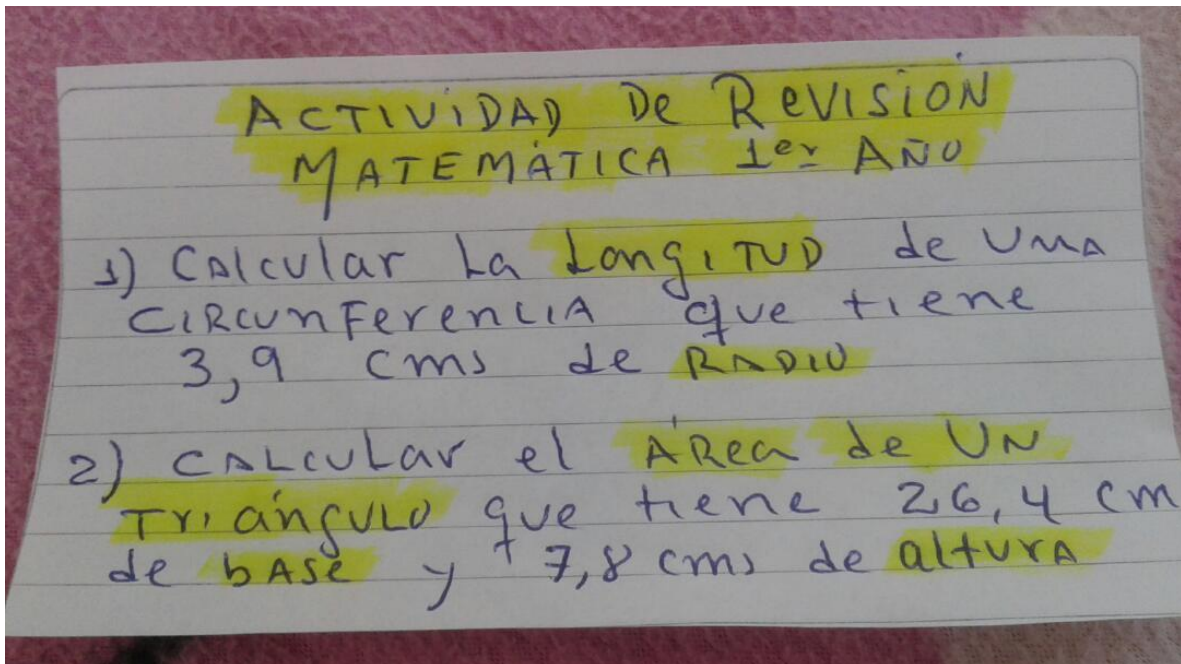 ACTIVIDAD De ReVISIÓN
MATEMÁTICA 1er AÑO
1) CALcular La LongITUD de UNA
CIRcunFerenCIA que tiene
3,9 cms de RADIO
2) CALcuLar el ÁRea de UN
TriánguLo que tiene 26,4 cm
de bAse y 7,8 cms de alturA